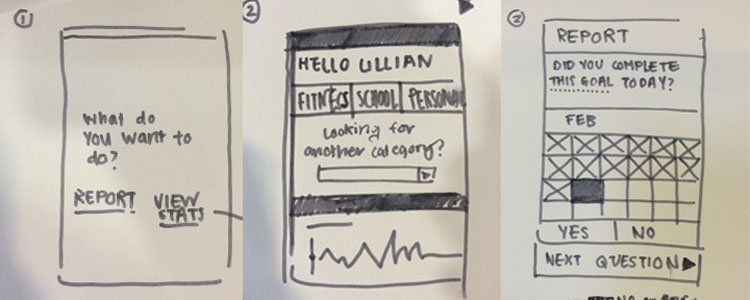 1
What do
you want to
do?
REPORT
VIEW
STATS
2
HELLO LILLIAN
FITNESS SCHOOL PERSONAL
Looking for
another category?
3
REPORT
DID YOU COMPLETE
THIS GOAL TODAY?
FEB
YES NO
NEXT QUESTION